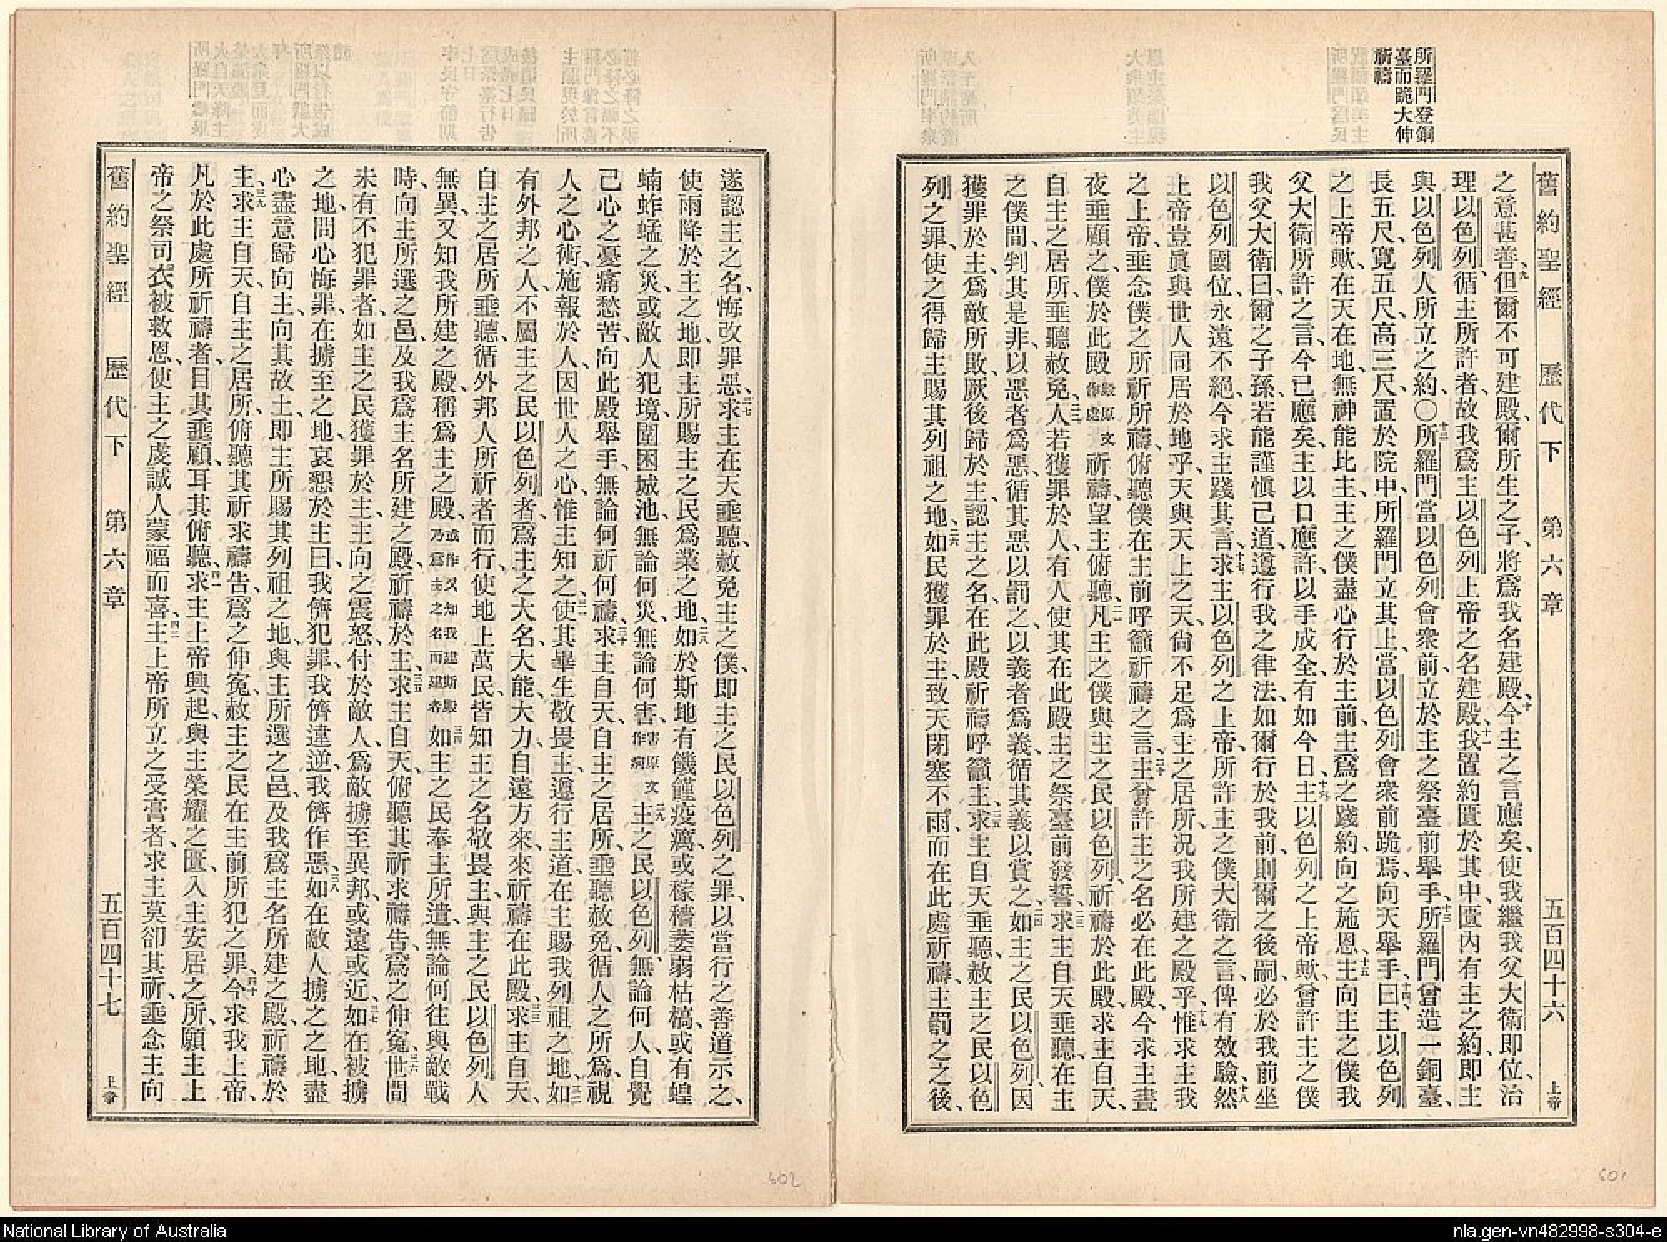 所羅門登銅
臺而跪大伸
祈禱
舊約聖經 歷代下 第六章 五百四十六 上帝
之意甚善、九但爾不可建殿、爾所生之子、將爲我名建殿、十今主之言應矣、使我繼我父大衛卽位、治
理以色列、循主所許者、故我爲主以色列上帝之名建殿、十一我置約匱於其中、匱內有主之約、卽主
與以色列人所立之約、○十二所羅門當以色列會衆前、立於主之祭臺前舉手、十三所羅門曾造一銅臺、
長五尺、寬五尺、高三尺、置於院中、所羅門立其上、當以色列會衆前跪焉、向天舉手、十四曰、主以色列
之上帝歟、在天在地、無神能比主、主之僕盡心行於主前、主爲之踐約、向之施恩、十五主向主之僕我
父大衛所許之言、今已應矣、主以口應許、以手成全、有如今日、十六主以色列之上帝歟、曾許主之僕
我父大衛曰、爾之子孫、若能謹愼己道、遵行我之律法、如爾行於我前、則爾之後嗣、必於我前坐
以色列國位、永遠不絕、今求主踐其言、十七求主以色列之上帝、所許主之僕大衛之言、俾有效驗、然十八
上帝豈眞與世人同居於地乎、天與天上之天、尚不足爲主之居所、況我所建之殿乎、十九惟求主我
之上帝、垂念僕之所祈所禱、俯聽僕在主前呼籲祈禱之言、二十主曾許主之名必在此殿、今求主晝
夜垂顧之、僕於此殿殿原文作處祈禱、望主俯聽、二一凡主之僕與主之民以色列、祈禱於此殿、求主自天、
自主之居所、垂聽赦免、二二人若獲罪於人、有人使其在此殿主之祭臺前發誓、二三求主自天垂聽、在主
之僕間、判其是非、以惡者爲惡、循其惡以罰之、以義者爲義、循其義以賞之、二四如主之民以色列、因
獲罪於主、爲敵所敗、厥後歸於主、認主之名、在此殿祈禱呼籲主、二五求主自天垂聽、赦主之民以色
列之罪、使之得歸主賜其列祖之地、二六如民獲罪於主、致天閉塞不雨、而在此處祈禱、主罰之之後、
遂認主之名、悔改罪惡、二七求主在天垂聽、赦免主之僕、卽主之民以色列之罪、以當行之善道示之、
使雨降於主之地、卽主所賜主之民爲業之地、二八如於斯地有饑饉疫癘、或稼穡萎弱枯槁、或有蝗
蝻蚱蜢之災、或敵人犯境、圍困城池、無論何災、無論何害害原文作病、二九主之民以色列、無論何人、自覺
己心之憂痛愁苦、向此殿舉手、無論何祈何禱、三十求主自天、自主之居所、垂聽赦免、循人之所爲、視
人之心術、施報於人、因世人之心、惟主知之、三一使其畢生敬畏主、遵行主道、在主賜我列祖之地、三二如
有外邦之人、不屬主之民以色列者、爲主之大名大能大力、自遠方來、來祈禱在此殿、三三求主自天、
自主之居所垂聽、循外邦人所祈者而行、使地上萬民、皆知主之名、敬畏主、與主之民以色列人
無異、又知我所建之殿、稱爲主之殿、或作又知我建斯殿乃爲主之名而建者三四如主之民、奉主所遣、無論何往、與敵戰
時、向主所選之邑、及我爲主名所建之殿、祈禱於主、三五求主自天俯聽其祈求禱告、爲之伸冤、三六世間
未有不犯罪者、如主之民獲罪於主、主向之震怒、付於敵人、爲敵擄至異邦、或遠或近、三七如在被擄
之地、問心悔罪、在擄至之地、哀懇於主曰、我儕犯罪、我儕違逆、我儕作惡、三八如在敵人擄之之地、盡
心盡意歸向主、向其故土、卽主所賜其列祖之地、與主所選之邑、及我爲主名所建之殿、祈禱於
主、三九求主自天、自主之居所、俯聽其祈求禱告、爲之伸冤、赦主之民在主前所犯之罪、四十今求我上帝、
凡於此處所祈禱者、目其垂顧、耳其俯聽、四一求主上帝興起、與主榮耀之匱、入主安居之所、願主上
帝之祭司、衣被救恩、使主之虔誠人、蒙福而喜、四二主上帝、所立之受膏者、求主莫卻其祈、垂念主向
舊約聖經 歷代下 第六章 五百四十七 上帝
602
601
National Library of Australia
nla.gen-vn482998-s304-e